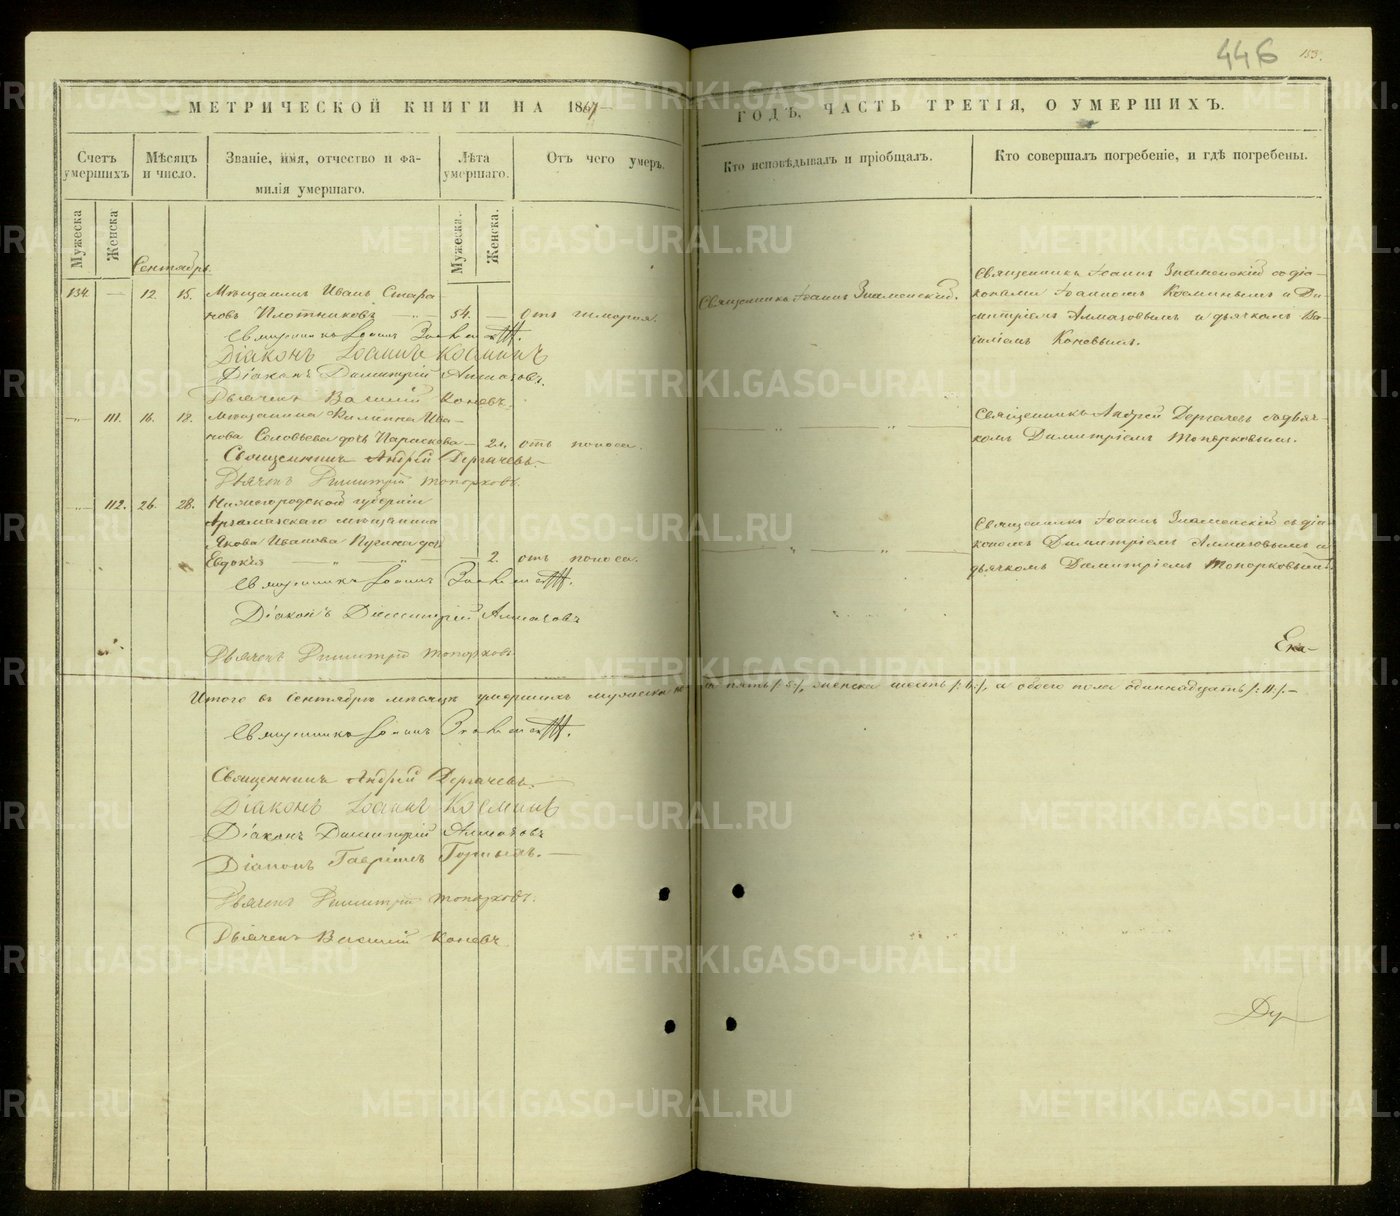 446
153.
МЕТРИЧЕСКОЙ КНИГИ НА 1867
ГОДЪ, ЧАСТЬ ТРЕТІЯ, О УМЕРШИХЪ.
Счетъ умершихъ
Мѣсяцъ и число.
Званіе, имя, отчество и фа-
милія умершаго.
Лѣта умершаго.
Отъ чего умеръ.
Кто исповѣдывалъ и пріобщалъ.
Кто совершалъ погребеніе, и гдѣ погребены.
Мужеска
Женска
Мужеска.
Женска.
Сентябрь.
134. — 12. 15. Мѣщанинъ Иванъ
новъ Плотниковъ — 54. — отъ
Священникъ Іоаннъ Знаменскій.
Священникъ Іоаннъ Знаменскій съ діа-
конами Іоанномъ Косминымъ и Ди-
митріемъ Алмазовымъ и дьячкомъ Ва-
силіемъ Коневымъ.
Священникъ Іоаннъ
Діаконъ Іоаннъ Косминъ
Діаконъ Димитрій Алмазовъ.
Дьячекъ Василій Коневъ.
111. 16. 18. Мѣщанина Филиппа Ива-
нова Соловьева дочь Параскова — 2. отъ поноса.
Священникъ Андрей Дергачевъ съ дьяч-
комъ Димитріемъ Топорковымъ.
Священникъ Андрей Дергачевъ.
Дьячекъ Димитрій Топорковъ.
112. 26. 28. Нижегородской губерніи
Арзамасскаго мѣщанина
Якова Иванова дочь
Евдокія — 2. отъ поноса.
Священникъ Іоаннъ Знаменскій съ діа-
кономъ Димитріемъ Алмазовымъ и
дьячкомъ Димитріемъ Топорковымъ.
Священникъ Іоаннъ
Діаконъ Димитрій Алмазовъ
Дьячекъ Димитрій Топорковъ.
Ека-
Итого въ сентябрѣ мѣсяцѣ умершихъ мужеска по ла пять /:5:/, женска шесть /:6:/, а обоего пола одиннадцать /:11:/.—
Священникъ Іоаннъ
Священникъ Андрей Дергачевъ.
Діаконъ Іоаннъ Косминъ
Діаконъ Димитрій Алмазовъ
Діаконъ Гавріилъ
Дьячекъ Димитрій Топорковъ.
Дьячекъ Василій Коневъ.
Ду-
METRIKI.GASO-URAL.RU